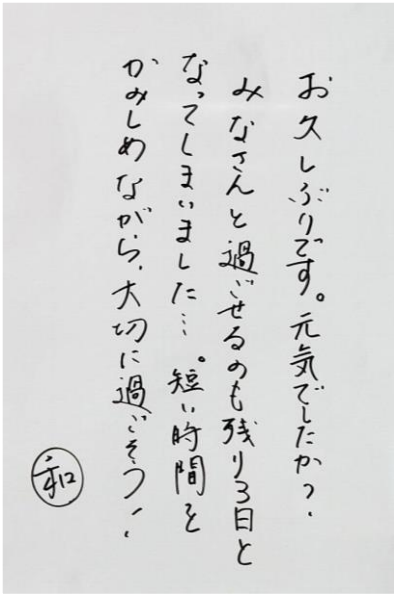 お久しぶりです。元気でしたか？
みなさんと過ごせるのも残り3日と
なってしまいました…。短い時間を
かみしめながら、大切に過ごそう！
和